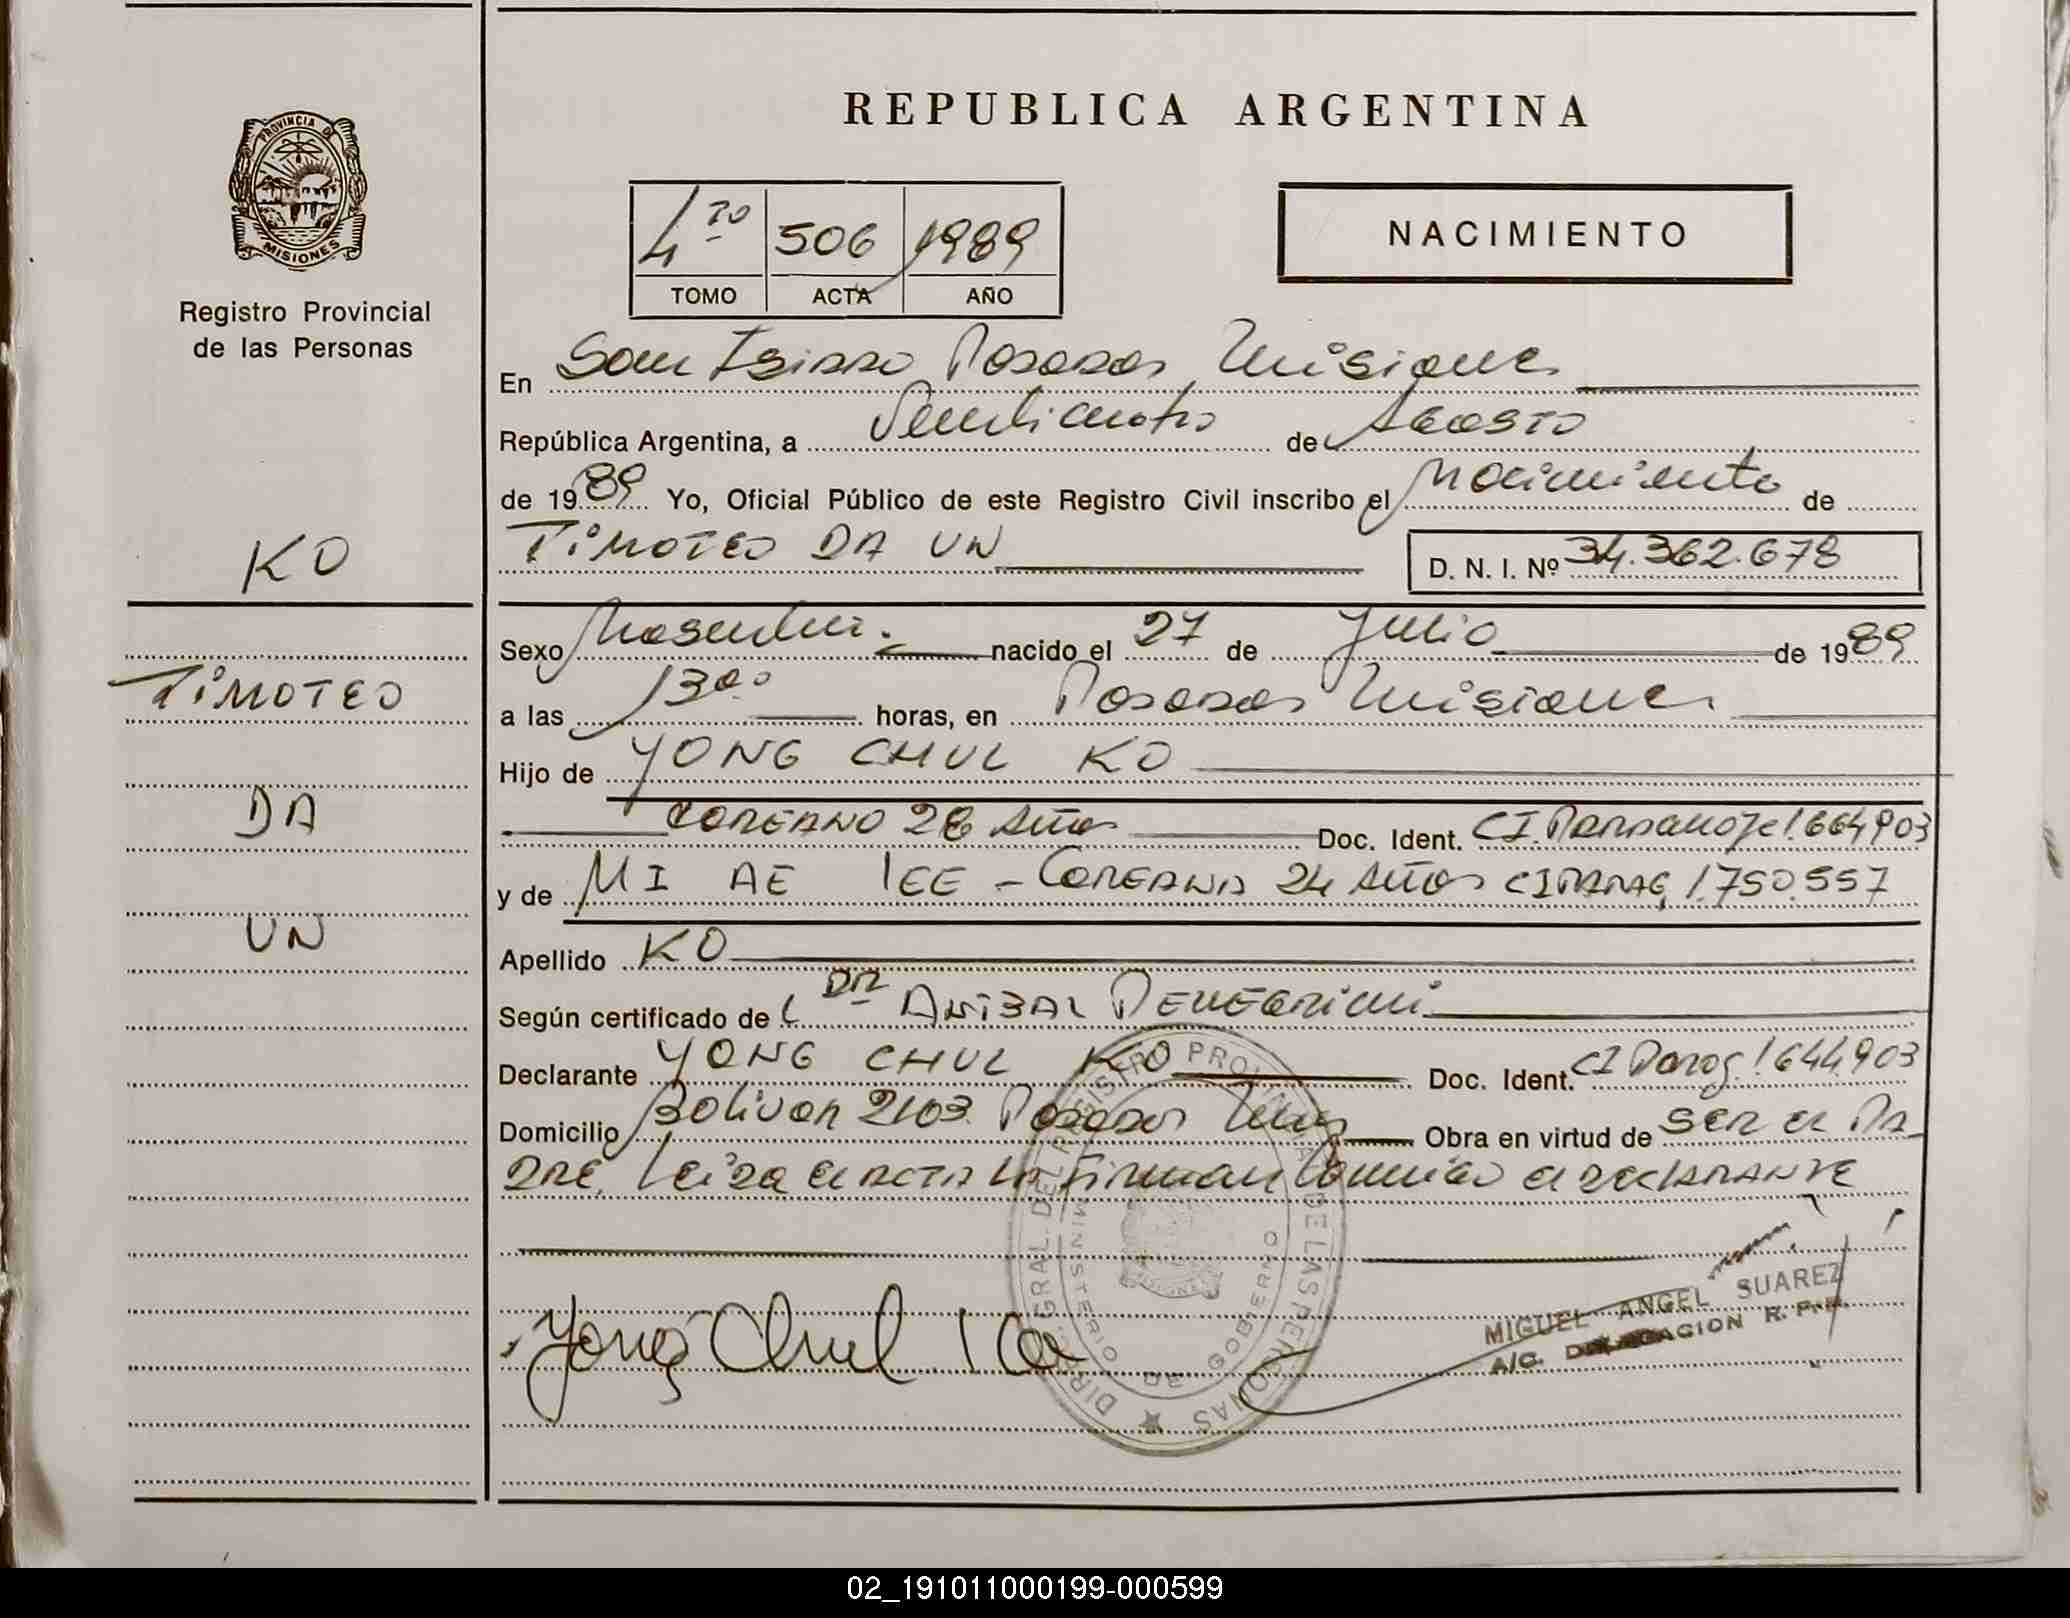 REPUBLICA ARGENTINA
PROVINCIA DE
MISIONES
Registro Provincial
de las Personas
4to 506 1989
TOMO ACTA AÑO
NACIMIENTO
En San Isidro Posadas Misiones
República Argentina, a Veinticuatro de Agosto
de 1989 Yo, Oficial Público de este Registro Civil inscribo el Nacimiento de
TIMOTEO DA UN
D. N. I. Nº 34.362.678
KO
TIMOTEO
DA
UN
Sexo Masculino. nacido el 27 de Julio de 1989
a las 13oo horas, en Posadas Misiones
Hijo de YONG CHUL KO
COREANO 28 Años Doc. Ident. CI. 1.664903
y de MI AE LEE - COREANA 24 Años CI PARAG, 1.750.557
Apellido KO
Según certificado de L DR ANIBAL PELLEGRINI
Declarante YONG CHUL KO Doc. Ident. CI Parag. 1644903
Domicilio Bolivar 2103 Posadas Mnes Obra en virtud de SER el PA
DRE. Leida el ACTA la Firman Conmigo el DeclARANTE
Yong Chul Ko
DIR. GRAL. DEL REGISTRO PROVINCIAL DE LAS PERSONAS
MINISTERIO DE GOBIERNO
MIGUEL ANGEL SUAREZ
A/C. DELEGACION R. P. P.
02_191011000199-000599